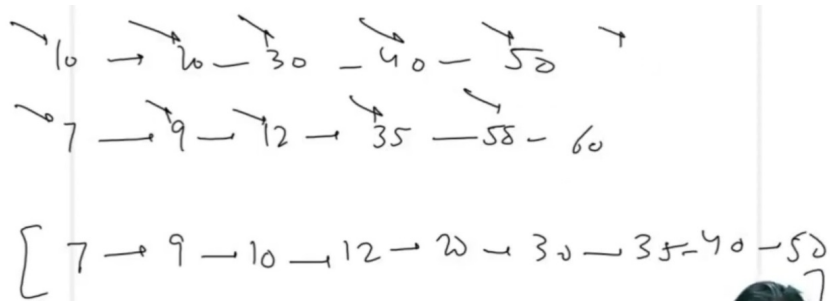 10 → 20 — 30 — 40 — 50
7 → 9 — 12 → 35 — 55 — 60
[ 7 → 9 — 10 → 12 → 20 → 30 — 35 — 40 — 50 ]